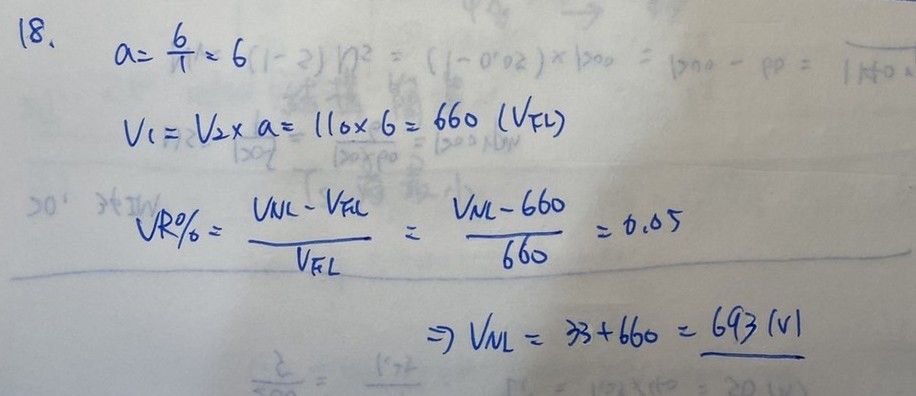 18.
a = 6/1 = 6
V1 = V2 x a = 110 x 6 = 660 (VFL)
VR% = (VNL - VFL)/VFL = (VNL - 660)/660 = 0.05
⇒ VNL = 33 + 660 = 693 (V)